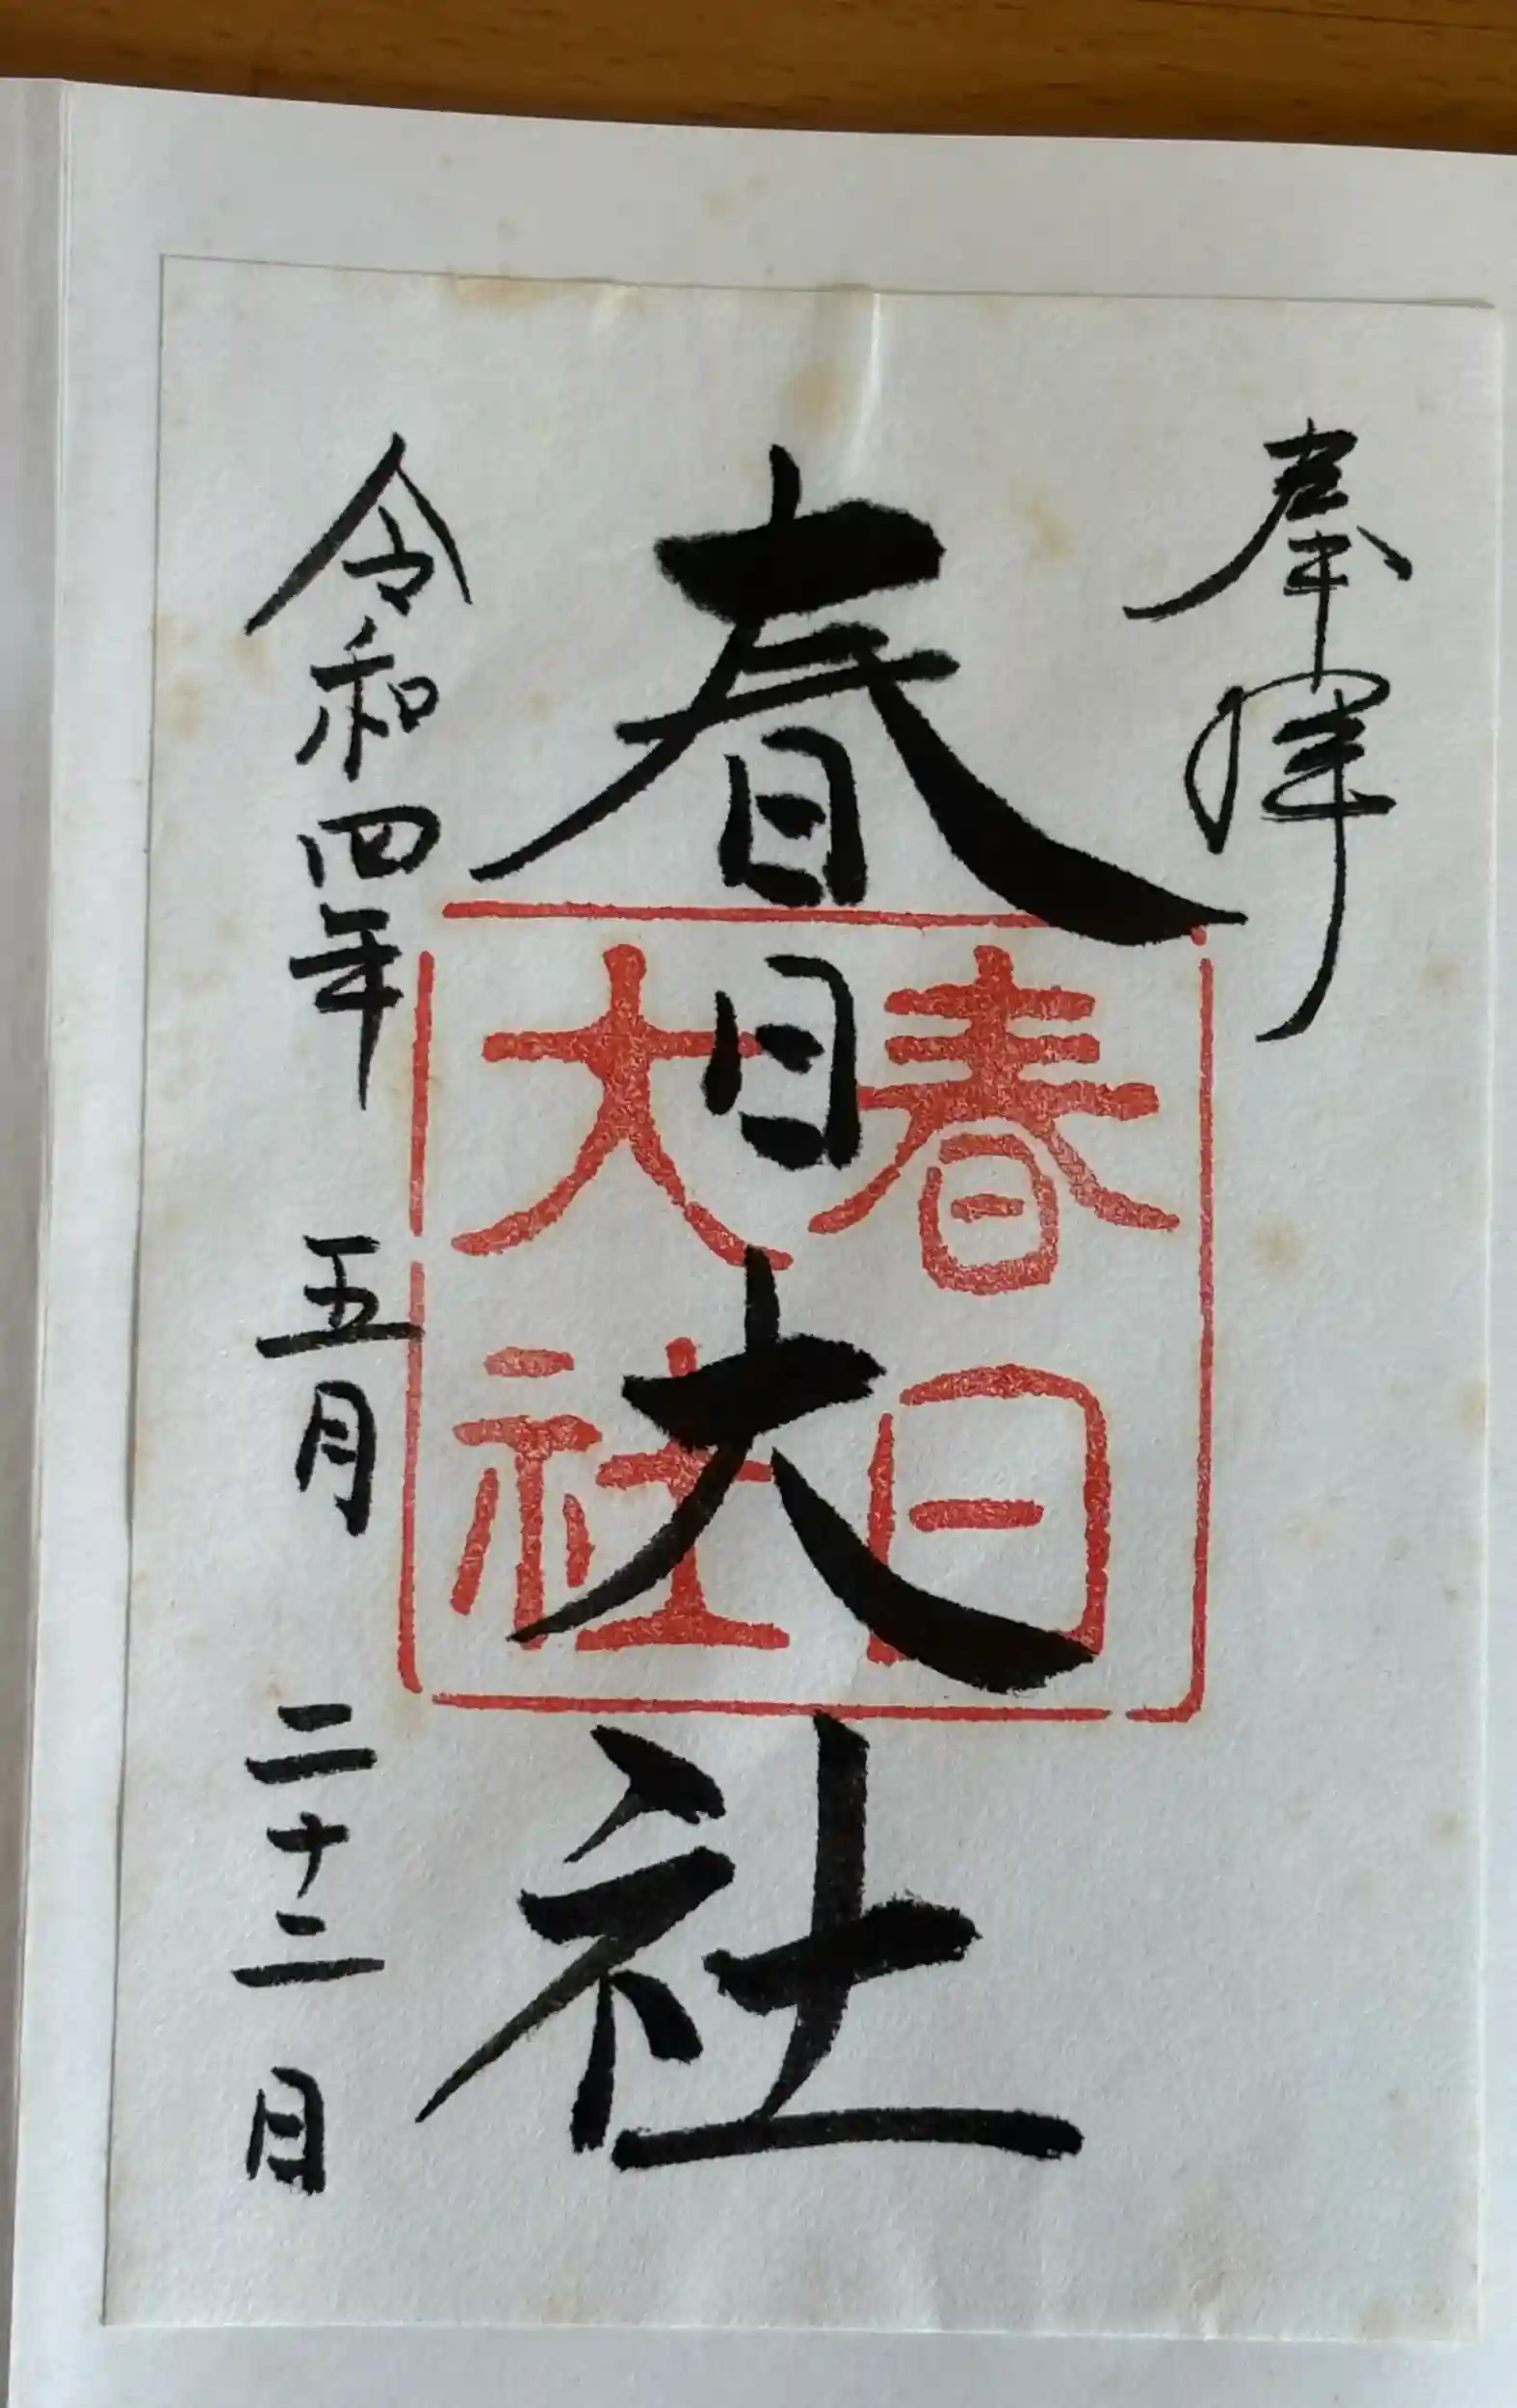 奉拝
春日大社
春日
大社
令和四年 五月 二十二日